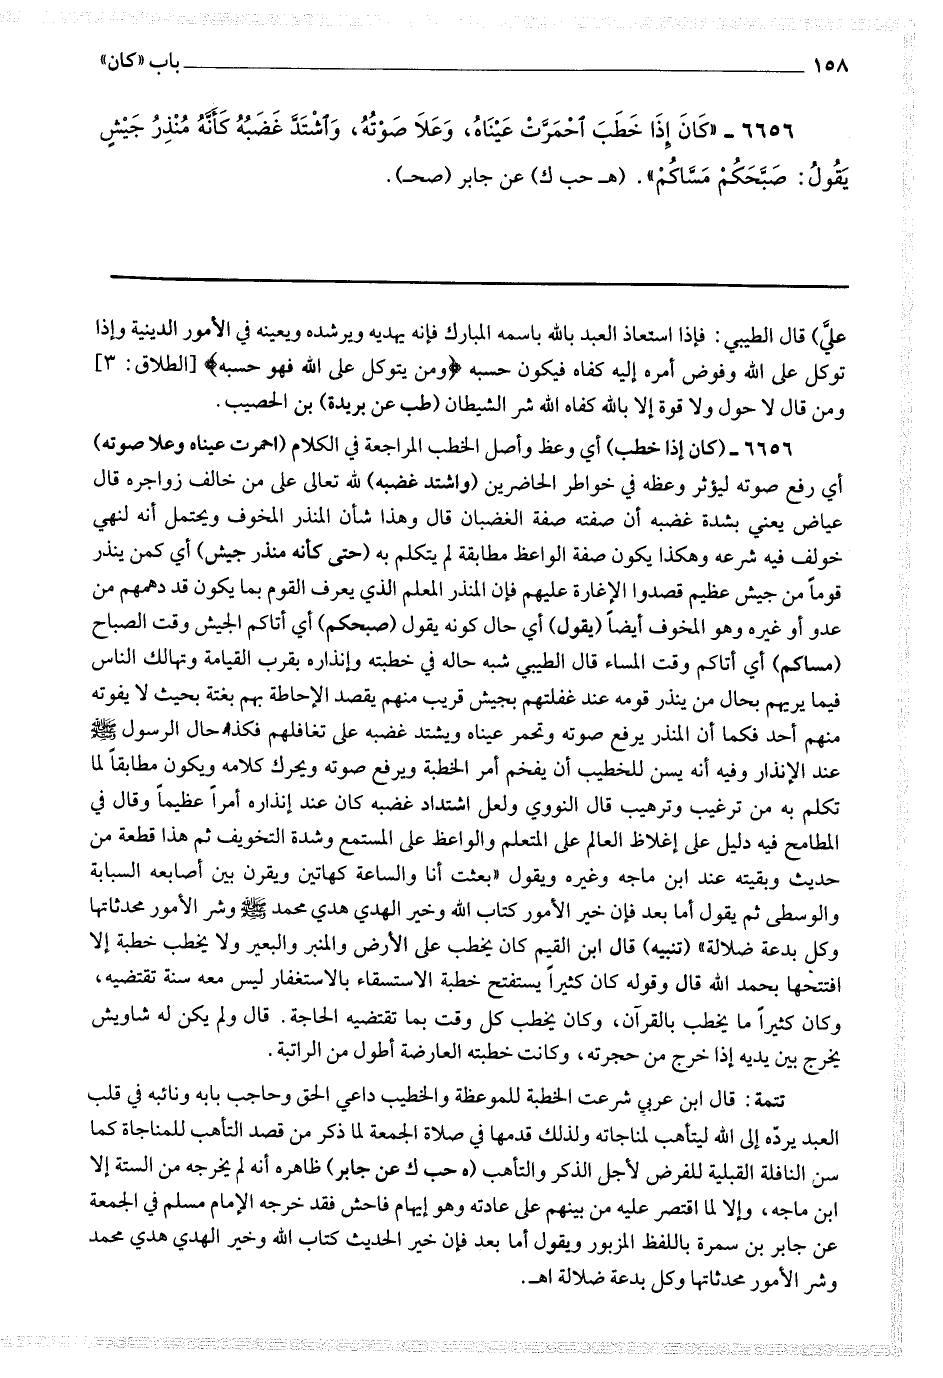 ١٥٨ ـــــــ باب «كان»
٦٦٥٦ ـ «كَانَ إِذَا خَطَبَ ٱحْمَرَّتْ عَيْنَاهُ، وَعَلَا صَوْتُهُ، وَٱشْتَدَّ غَضَبُهُ كَأَنَّهُ مُنْذِرُ جَيْشٍ
يَقُولُ: صَبَّحَكُمْ مَسَّاكُمْ». (هـ حب ك) عن جابر (صحـ).
عليَّ) قال الطيبي: فإذا استعاذ العبد بالله باسمه المبارك فإنه يهديه ويرشده ويعينه في الأمور الدينية وإذا
توكل على الله وفوض أمره إليه كفاه فيكون حسبه ﴿ومن يتوكل على الله فهو حسبه﴾ [الطلاق: ٣]
ومن قال لا حول ولا قوة إلا بالله كفاه الله شر الشيطان (طب عن بريدة) بن الحصيب.
٦٦٥٦ ـ (كان إذا خطب) أي وعظ وأصل الخطب المراجعة في الكلام (احمرت عيناه وعلا صوته)
أي رفع صوته ليؤثر وعظه في خواطر الحاضرين (واشتد غضبه) لله تعالى على من خالف زواجره قال
عياض يعني بشدة غضبه أن صفته صفة الغضبان قال وهذا شأن المنذر المخوف ويحتمل أنه لنهي
خولف فيه شرعه وهكذا يكون صفة الواعظ مطابقة لم يتكلم به (حتى كأنه منذر جيش) أي كمن ينذر
قوماً من جيش عظيم قصدوا الإغارة عليهم فإن المنذر المعلم الذي يعرف القوم بما يكون قد دهمهم من
عدو أو غيره وهو المخوف أيضاً (يقول) أي حال كونه يقول (صبحكم) أي أتاكم الجيش وقت الصباح
(مساكم) أي أتاكم وقت المساء قال الطيبي شبه حاله في خطبته وإنذاره بقرب القيامة وتهالك الناس
فيما يريهم بحال من ينذر قومه عند غفلتهم بجيش قريب منهم يقصد الإحاطة بهم بغتة بحيث لا يفوته
منهم أحد فكما أن المنذر يرفع صوته وتحمر عيناه ويشتد غضبه على تغافلهم فكذا حال الرسول ﷺ
عند الإنذار وفيه أنه يسن للخطيب أن يفخم أمر الخطبة ويرفع صوته ويحرك كلامه ويكون مطابقاً لما
تكلم به من ترغيب وترهيب قال النووي ولعل اشتداد غضبه كان عند إنذاره أمراً عظيماً وقال في
المطامح فيه دليل على إغلاظ العالم على المتعلم والواعظ على المستمع وشدة التخويف ثم هذا قطعة من
حديث وبقيته عند ابن ماجه وغيره ويقول «بعثت أنا والساعة كهاتين ويقرن بين أصابعه السبابة
والوسطى ثم يقول أما بعد فإن خير الأمور كتاب الله وخير الهدي هدي محمد ﷺ وشر الأمور محدثاتها
وكل بدعة ضلالة» (تنبيه) قال ابن القيم كان يخطب على الأرض والمنبر والبعير ولا يخطب خطبة إلا
افتتحها بحمد الله قال وقوله كان كثيراً يستفتح خطبة الاستسقاء بالاستغفار ليس معه سنة تقتضيه،
وكان كثيراً ما يخطب بالقرآن، وكان يخطب كل وقت بما تقتضيه الحاجة. قال ولم يكن له شاويش
يخرج بين يديه إذا خرج من حجرته، وكانت خطبته العارضة أطول من الراتبة.
تتمة: قال ابن عربي شرعت الخطبة للموعظة والخطيب داعي الحق وحاجب بابه ونائبه في قلب
العبد يردّه إلى الله ليتأهب لمناجاته ولذلك قدمها في صلاة الجمعة لما ذكر من قصد التأهب للمناجاة كما
سن النافلة القبلية للفرض لأجل الذكر والتأهب (ه حب ك عن جابر) ظاهره أنه لم يخرجه من الستة إلا
ابن ماجه، وإلا لما اقتصر عليه من بينهم على عادته وهو إيهام فاحش فقد خرجه الإمام مسلم في الجمعة
عن جابر بن سمرة باللفظ المزبور ويقول أما بعد فإن خير الحديث كتاب الله وخير الهدي هدي محمد
وشر الأمور محدثاتها وكل بدعة ضلالة اهـ.